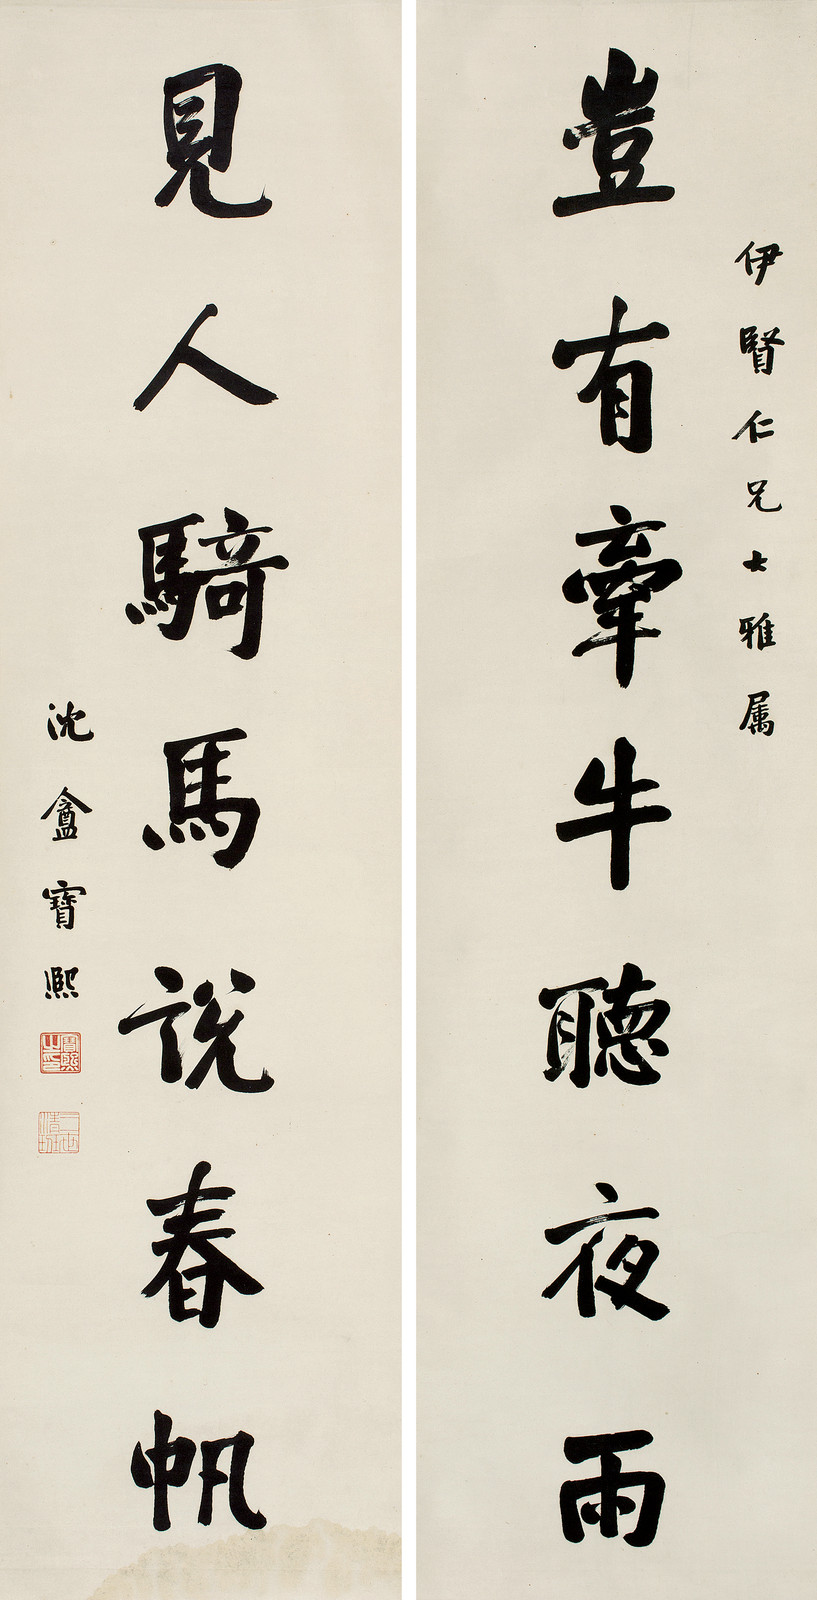 伊賢仁兄大雅属
豈有牽牛聽夜雨
見人騎馬說春帆
沈盦寶熙
寶熙之印